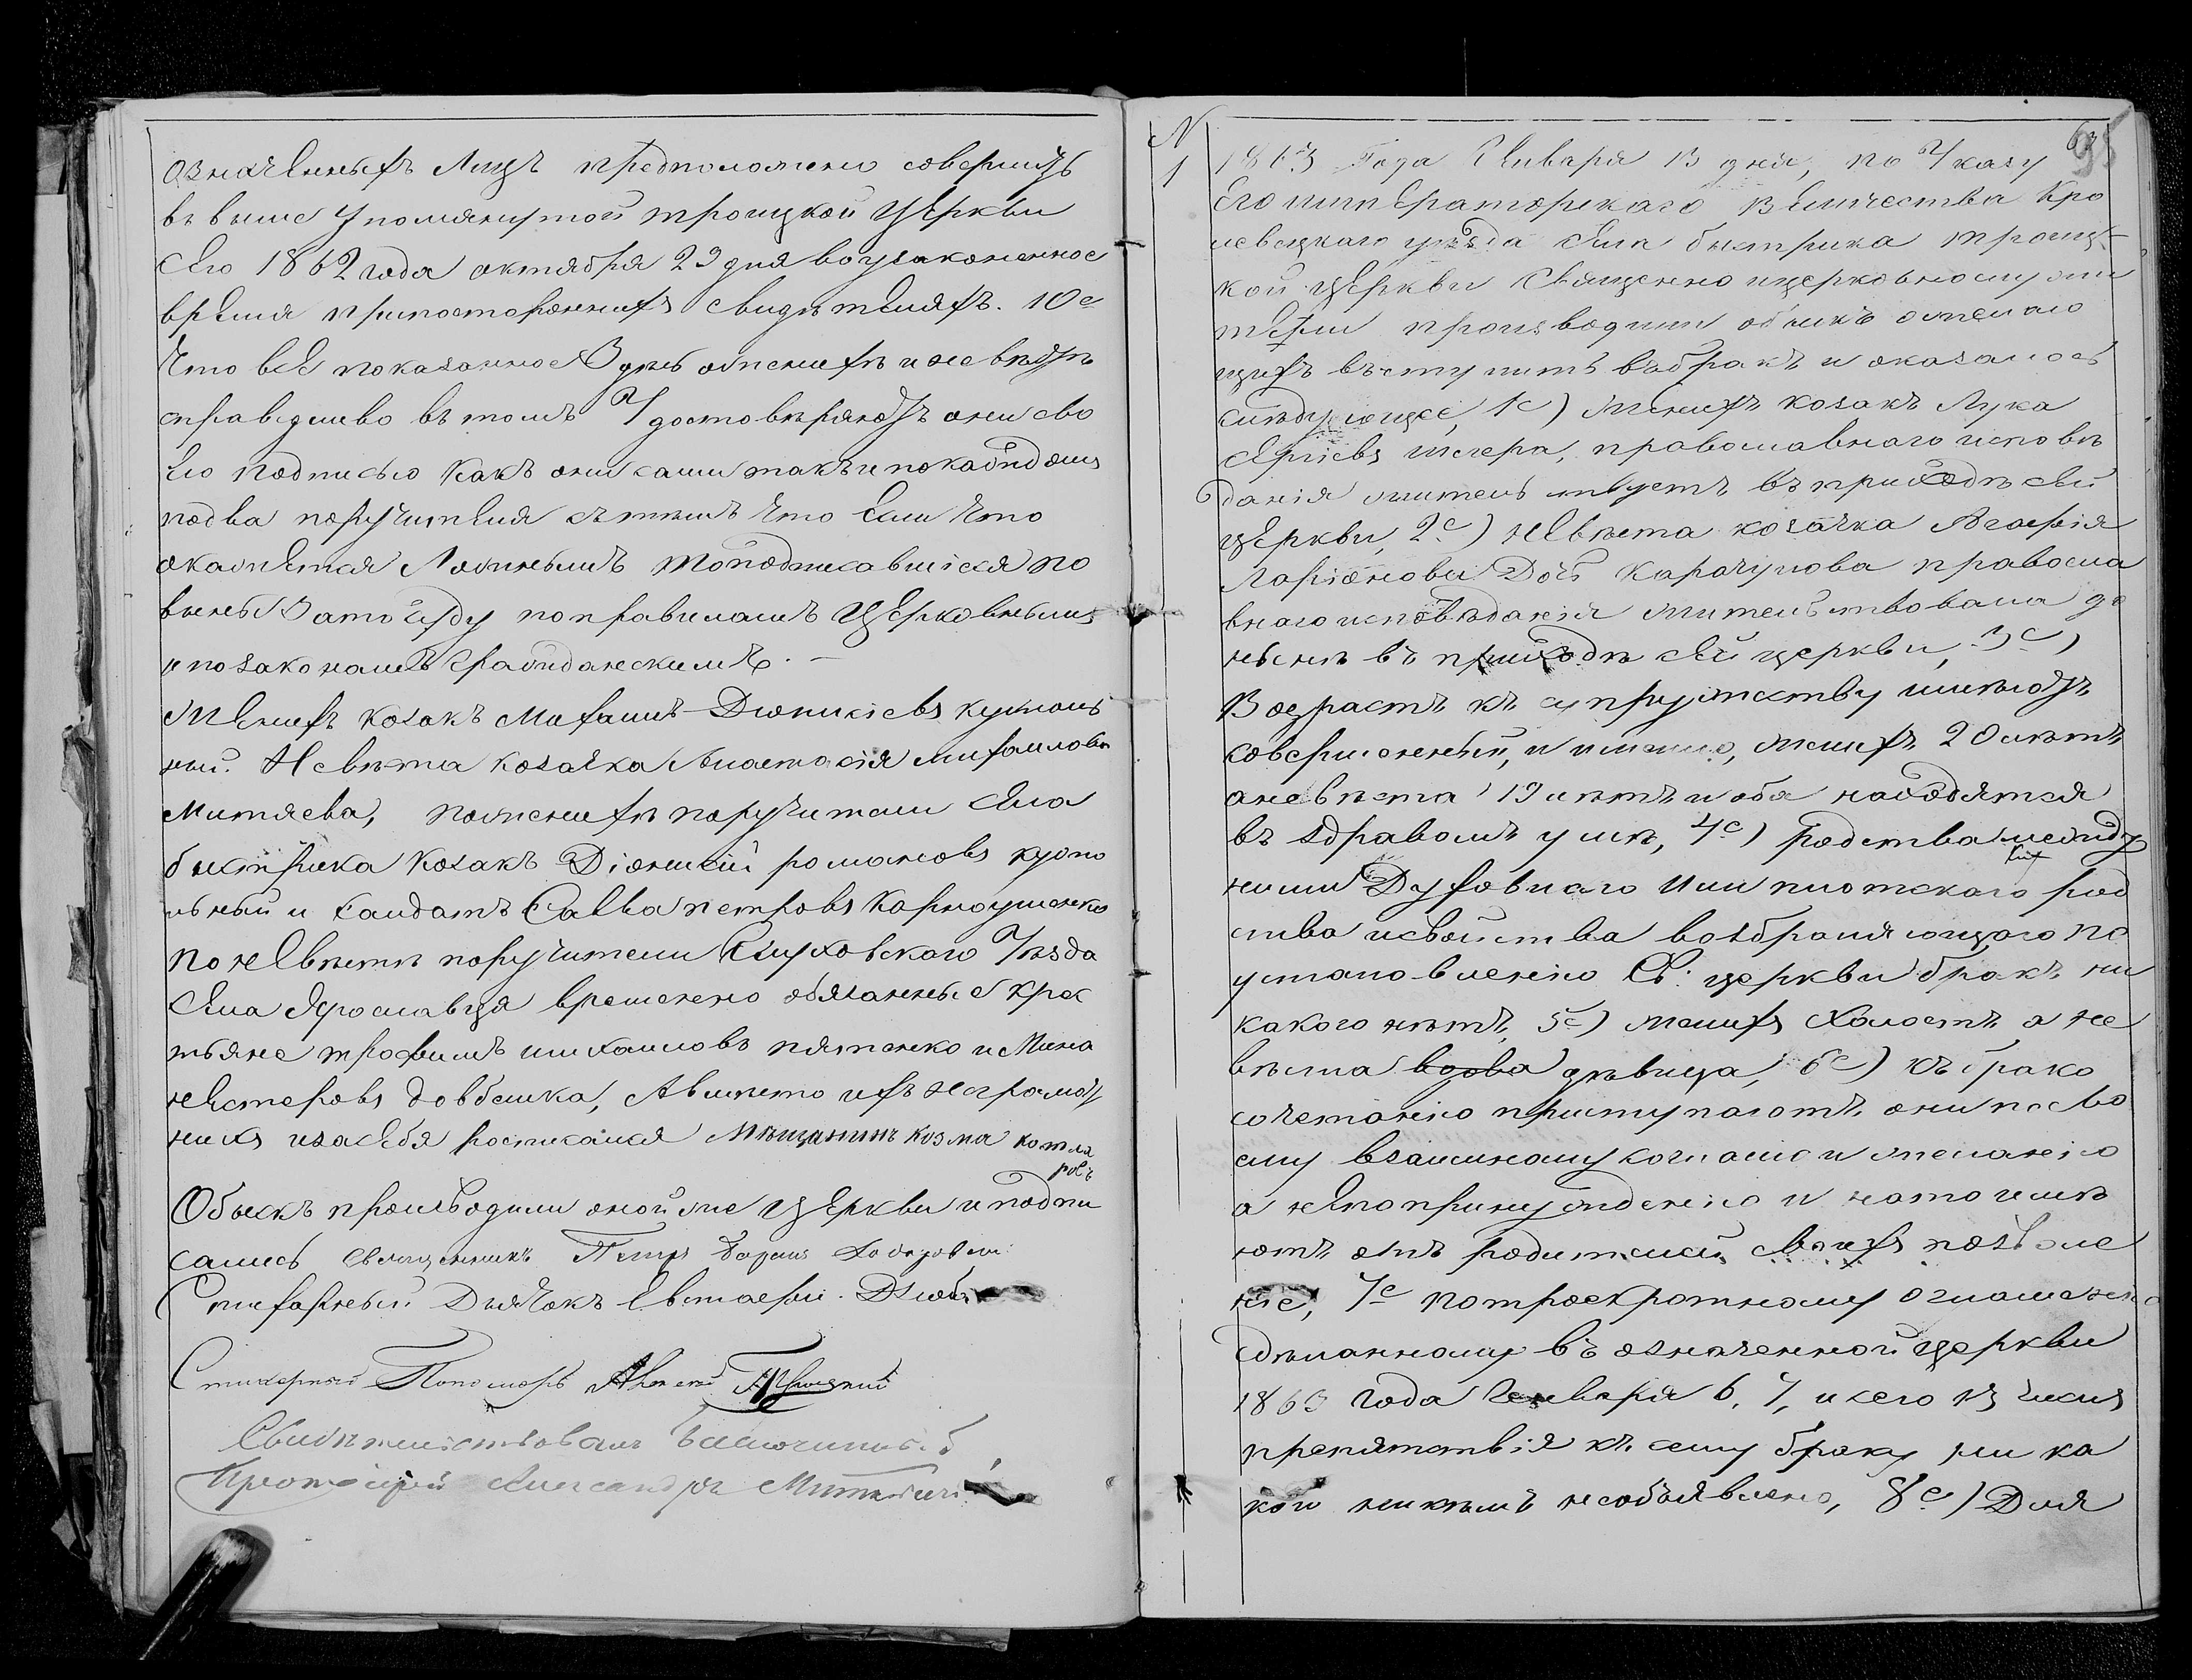 означенныхъ лицъ предположено совершить
въ выше упомянутой троицкой церкви
сего 1862 года октября 29 дня воузаконенное
время припосторонних свидѣтеляхъ. 10е
Что всѣ показанное Здѣсь обженихѣ и невѣстѣ
справедливо въ томъ Удостовѣряютъ они сво
ею подписью Какъ они сами такъ и покаждомъ
подва поручителя съ тѣмъ что Если что
окажется Ложнымъ то подписавшіеся по
винны Затосуду поправиламъ Церковнымъ
и позаконамъ гражданскимъ. —
Женихъ козакъ Михаилъ Діонисіевъ куполь
ный. Невѣста козачка Анастасія михаилова
Митяева, поженихѣ поручители села
быстрика козакъ Діонисій романовъ купо
льный и салдатъ Савва петровъ Карнаушенко
По невѣстѣ поручители Глуховскаго Уѣзда
села Ярославця временно обязанные крес
тьяне трофимъ михаиловъ пятенко и Мина
нестеровъ довбешка, Авместо ихъ неграмот
ныхъ изасебя росписался мѣщанинъ козма котля
ровъ
Обыскъ производили оной же церкви и подпи
сались священникъ Петръ
Стихарный Дьячокъ Евстафій
Стихарный Пономарь Алексей Троицкий
Свидѣтельствовалъ Благочинный
Протоіерей Александръ
N
1
1863 Года Января 13 дня, по Указу
Его императорскаго Величества Кро
левецкаго уѣзда села быстрика троиц-
кой церкви Священно ицерковнослужи
тели производили обыскъ ожелаю
щихъ вступить въбракъ и оказалось
слѣдующее, 1е) женихъ козакъ Лука
Сергіевъ шкера, православнаго исповѣ
данія жительствуетъ въ приходѣ сей
церкви, 2е) невѣста козачка Агафія
Ларіонова Дочь Карачупова правосла
внаго исповѣданія жительствовала до
нынѣ въ приходѣ сей церкви, 3е)
Возрастъ къ супружеству имѣютъ
совершенный, и именно, женихъ 20 лѣтъ
аневѣста 19 лѣтъ и оба находятся
въ здравомъ умѣ, 4е) родства между
ними Духовнаго Или плотскаго род
ства исвойства возбраняющаго по
установленію Св. церкви бракъ ни
какого нѣтъ, 5е) женихъ Холостъ а не
вѣста вдова дѣвица, 6е) къ брако
сочетанію приступаютъ они по сво
ему взаимному согласію и желанію
а непопринужденію и натоимѣ
ютъ отъ родителей своихъ позволе
ніе, 7е потроекратному оглашенію
сдѣланному въ означенной церкви
1863 года Генваря 6, 7, и сего 13 числъ
препятствія къ сему браку ни ка
кой никѣмъ необъявлено, 8е) Для